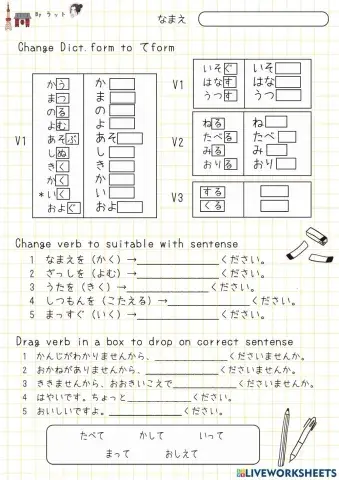 By ラット
なまえ
Change Dict.form to てform
V1
かう か
まつ ま
のる の
よむ よ
あそぶ あそ
しぬ し
きく き
かく か
*いく い
およぐ およ
V1
いそぐ いそ
はなす はな
うつす うつ
V2
ねる ね
たべる たべ
みる み
おりる おり
V3
する
くる
Change verb to suitable with sentense
1 なまえを(かく)→______________ください。
2 ざっしを(よむ)→______________ください。
3 うたを(きく)→______________ください。
4 しつもんを(こたえる)→______________ください。
5 まっすぐ(いく)→______________ください。
Drag verb in a box to drop on correct sentense
1 かんじがわかりませんから、____________くださいませんか。
2 おかねがありませんから、____________くださいませんか。
3 ききませんから、おおきいこえで__________くださいませんか。
4 はやいです。ちょっと__________ください。
5 おいしいですよ。____________ください。
たべて かして いって
まって おしえて
LIVEWORKSHEETS